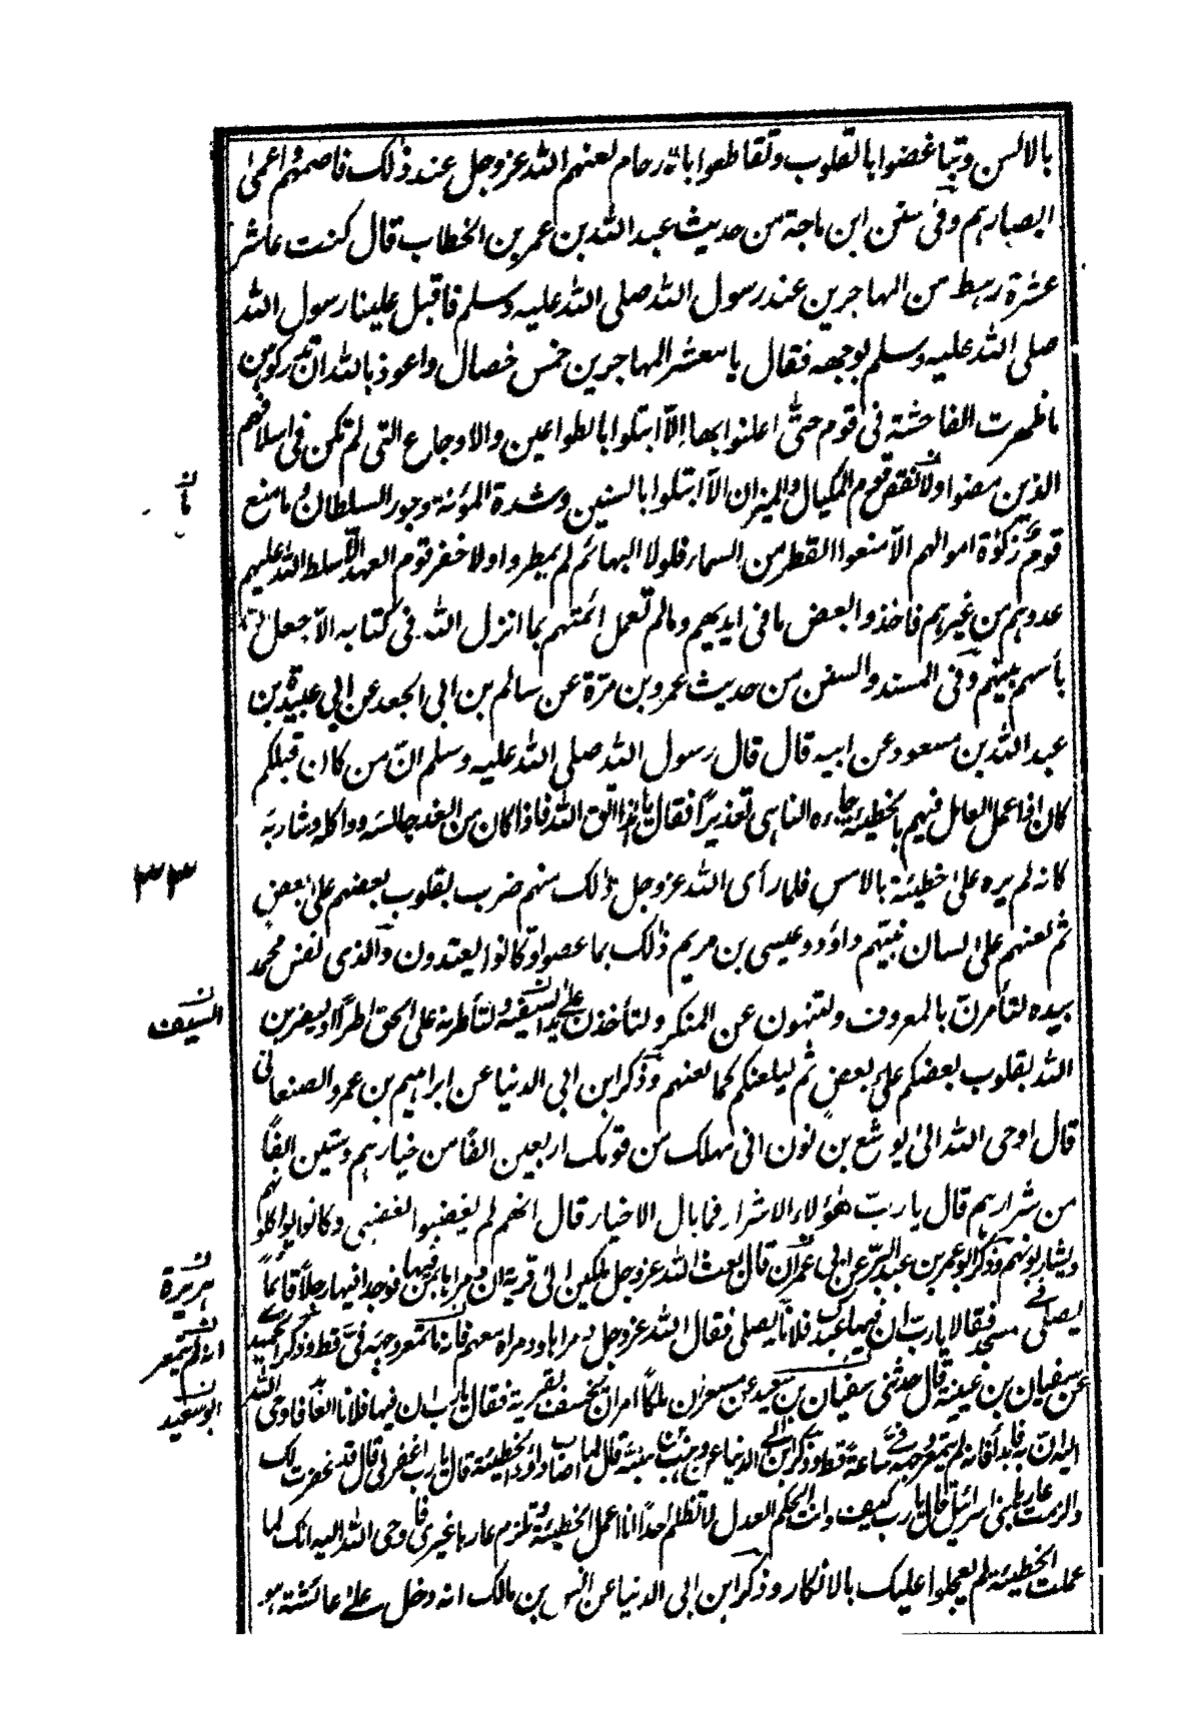 بالالسن وتباغضوا بالقلوب وتقاطعوا بالارحام لعنهم الله عز وجل عند ذلك فاصمهم واعمى
ابصارهم وفى سنن ابن ماجة من حديث عبد الله بن عمر بن الخطاب قال كنت عاشر
عشرة رهط من المهاجرين عند رسول الله صلى الله عليه وسلم فاقبل علينا رسول الله
صلى الله عليه وسلم بوجهه فقال يا معشر المهاجرين خمس خصال واعوذ بالله ان تدركوهن
ما ظهرت الفاحشة فى قوم حتى اعلنوا بها الّا ابتلوا بالطواعين والاوجاع التى لم تكن فى اسلافهم
الذين مضوا ولا نقص قوم المكيال والميزان الّا ابتلوا بالسنين وشدة المؤنة وجور السلطان وما منع
قوم زكوٰة اموالهم الّا منعوا القطر من السماء فلولا البهائم لم يمطروا ولا خفر قوم العهد الّا سلط الله عليهم
عدوهم من غيرهم فاخذوا بعض ما فى ايديهم وما لم تعمل ائمتهم بما انزل الله فى كتابه الّا جعل الله
بأسهم بينهم وفى المسند والسنن من حديث عمرو بن مرّة عن سالم بن ابى الجعد عن ابى عبيدة بن
عبد الله بن مسعود عن ابيه قال قال رسول الله صلى الله عليه وسلم انّ من كان قبلكم
كان اذا عمل العامل فيهم بالخطيئة جاءه الناهى تعذيرًا فقال يا هذا اتق الله فاذا كان من الغد جالسه وواكله وشاربه
كانه لم يره على خطيئة بالامس فلما رأى الله عز وجل ذلك منهم ضرب بقلوب بعضهم على بعض
ثم لعنهم على لسان نبيّهم داؤد وعيسى بن مريم ذلك بما عصوا وّكانوا يعتدون والذى نفس محمد
بيده لتأمرنّ بالمعروف ولتنهون عن المنكر ولتأخذن على يد السفيه ولتأطرنه على الحق اطرًا او ليضربن
الله بقلوب بعضكم على بعض ثم ليلعنكم كما لعنهم وذكر ابن ابى الدنيا عن ابراهيم بن عمرو الصنعانى
قال اوحى الله الى يوشع بن نون انى مهلك من قومك اربعين الفًا من خيارهم وستين الفًا
من شرارهم قال يا ربّ هؤلاء الاشرار فما بال الاخيار قال انهم لم يغضبوا لغضبى وكانوا يواكلونهم
ويشاربونهم وذكر ابو عمر بن عبد البرّ عن ابى عمران قال بعث الله عز وجل ملكين الى قرية ان دمراها بمن فيها فوجدا فيها رجلًا قائمًا
يصلى فى مسجد فقالا يا ربّ ان فيها عبدك فلانا يصلى فقال الله عز وجل دمراها ودمراه معهم فانه ما تمعر وجهه فىّ قط وذكر الحميدى
عن سفيان بن عيينة قال حدثنى سفيان بن سعيد عن مسعر ان ملكًا امر ان يخسف بقرية فقال يا رب ان فيها فلانا العابد فاوحى الله
اليه ان به فابدأ فانه لم يتمعر وجهه فىّ ساعةً قط وذكر ابن ابى الدنيا عن وهب بن منبه قال لما اصاب داؤد الخطيئة قال يا رب اغفر لى قال قد غفرت لك
والزمت عارها بنى اسرائيل قال يا رب كيف وانت الحكم العدل لا تظلم احدًا انا اعمل الخطيئة وتلزم عارها غيرى فاوحى الله اليه انك لما
عملت الخطيئة لم يعجلوا عليك بالانكار وذكر ابن ابى الدنيا عن انس بن مالك انه دخل على عائشة هو
ن
ما
٣٣
ن
السيف
ن
هريرة
ن
انه لم يتمعر
ن
ابو سعيد